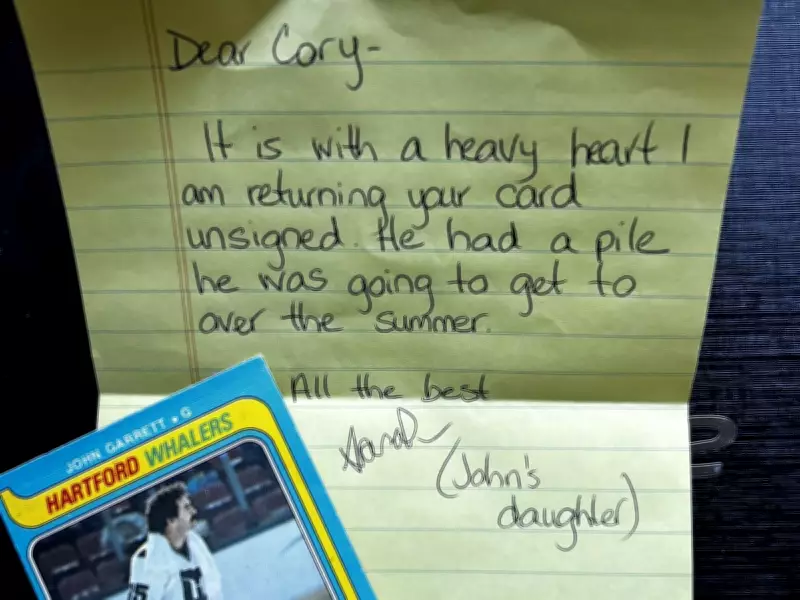 Dear Cory-
It is with a heavy heart I
am returning your card
unsigned. He had a pile
he was going to get to
over the summer.
All the best
(John's
daughter)
JOHN GARRETT • G
HARTFORD WHALERS